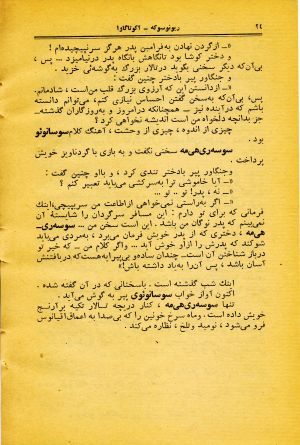 ۲۴ ریونوسوکه – آکوتاگاوا
«ـ از گردن نهادن به فرامین پدر هرگز سرنپیچیده‌ام!
و دختر کوشا بود تانگاهش بانگاه پدر درنیامیزد ... پس ،
بی‌آن‌که دیگر سخنی بگوید درتالار بزرگ به‌گوشه‌ئی خزید .
و جنگاور پیر بادختر چنین گفت :
«ـ ازدانستن این که آرزوی بزرگ قلب من‌است ، شادمانم.
پس، بی‌آن‌که به‌سخن گفتن احساس نیازی کنم، می‌توام دانسته
باشم که درآینده نیز ـ همچنانکه درامروز و به‌روزگاران گذشته‌ـ
جز بدانچه دلخواه من است اندیشه نخواهی کرد ؟
چیزی از اندوه ، چیزی از وحشت ، آهنگ کلام سوسانوئو
بود .
سوسه‌ری‌هی‌مه سخنی نگفت و به بازی با گردناویز خویش
پرداخت .
وجنگاور پیر بادختر تندی کرد ، و بااو چنین گفت :
«ـ آیا خاموشی ترا به‌سرکشی می‌باید تعبیر کنم ؟
ـ نه ، پدر! تو ... تو ...
ـ اگر به‌راستی نمی‌خواهی ازاطاعت من سرپیچی، اینك
فرمانی که برای تو دارم : این مسافر سرگردان را شایستهٔ آن
نمی‌بینم که پدر نوگان من باشد. این است سخن من ... سوسه‌ری‌ـ
هی‌مه ، دختری که از پدر خویش فرمان می‌برد ، به‌مردی می‌باید
شوکند که پدرش را ازاو خوش آید ... واگر کلام من ـ که خیر تو
درباز شناختن آن است‌ـ چندان ساده‌و بی‌پیرایه‌هست که دریافتنش
آسان باشد ، پس آن‌را به‌یاد داشته باش!»
اینك شب گذشته است . باسخنانی که در آن گفته شده .
اکنون آواز خواب سوسانوئوی پیر به گوش می‌آید .
تنها سوسه‌ری‌هی‌مه ، کنار دریچه تالار تکیه برآرنج
خویش داده است. وماه سرخ خونین را که بی‌صدا به اعماق اقیانوس
فرو می‌شود ، نومید وتلخ ، نظاره می‌کند .